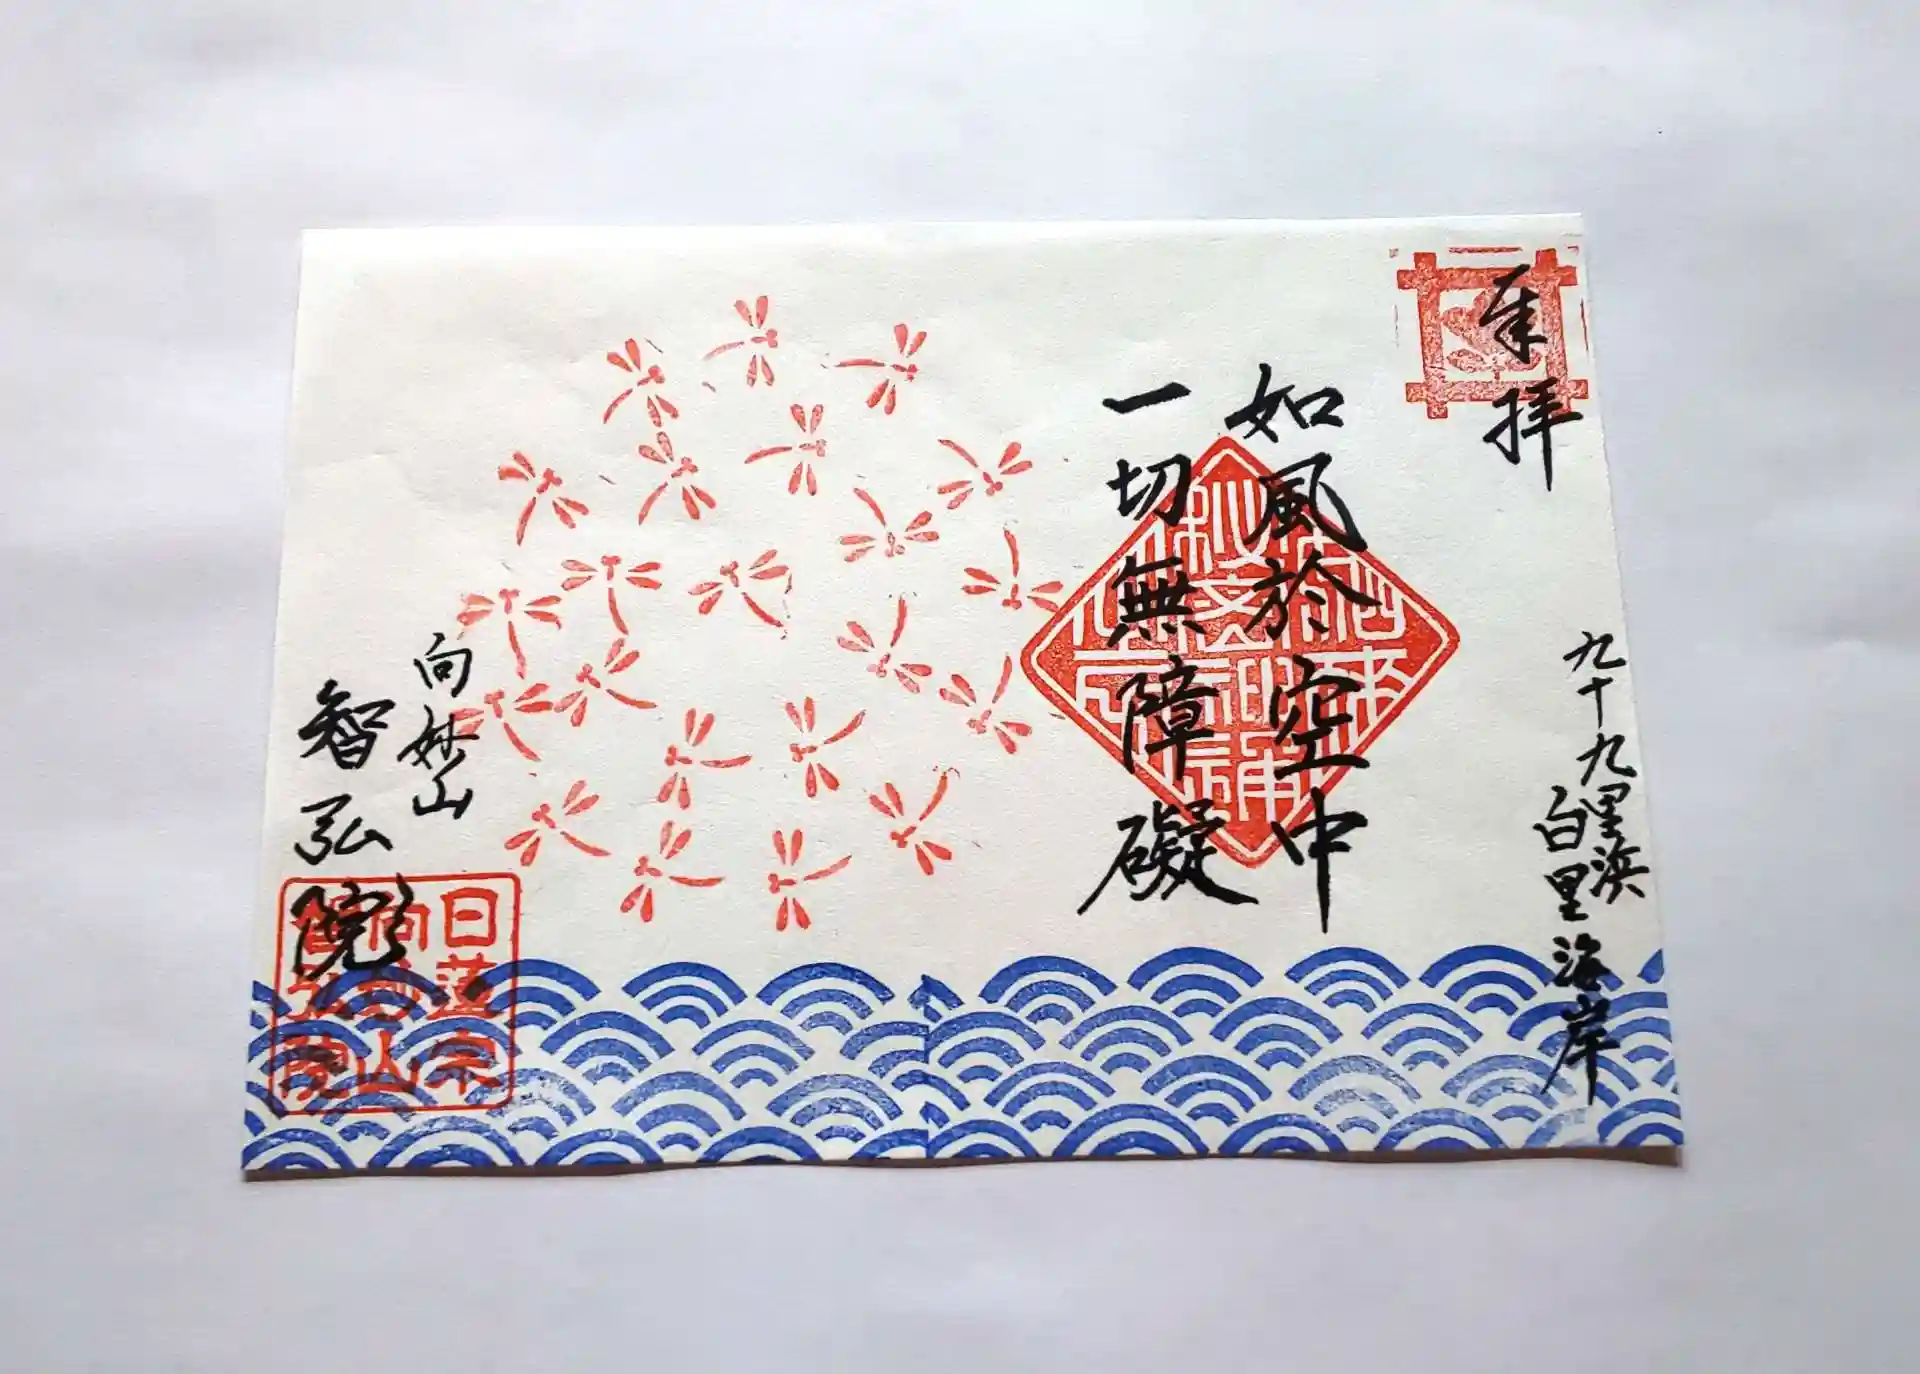 奉拝
九十九里浜
白里海岸
如風於空中
一切無障礙
向妙山
智弘院
日蓮宗
向妙山
智弘院